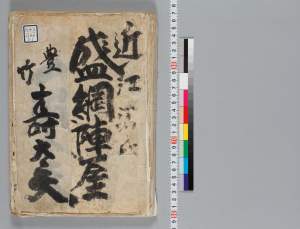 近江源氏
盛綱陣屋
豊竹
寿太夫